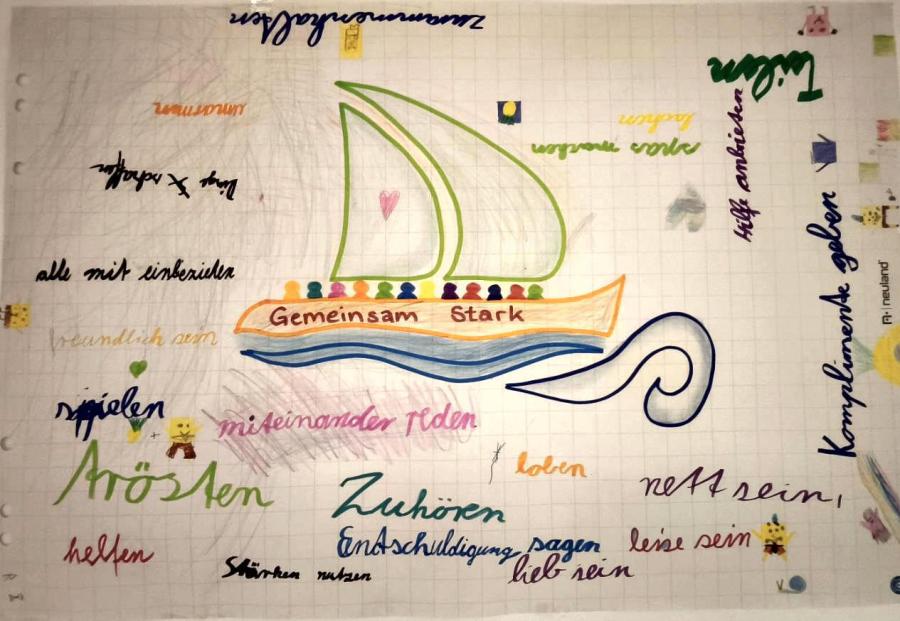 zusammenhalten
Teilen
umarmen
lachen
spas machen
Hilfe anbieten
schaffen
alle mit einbeziehen
Komplimente geben
neuland
Gemeinsam Stark
freundlich sein
spielen
miteinander reden
trösten
loben
Zuhören
nett sein,
helfen
Entschuldigung sagen
leise sein
Stärken nutzen
lieb sein